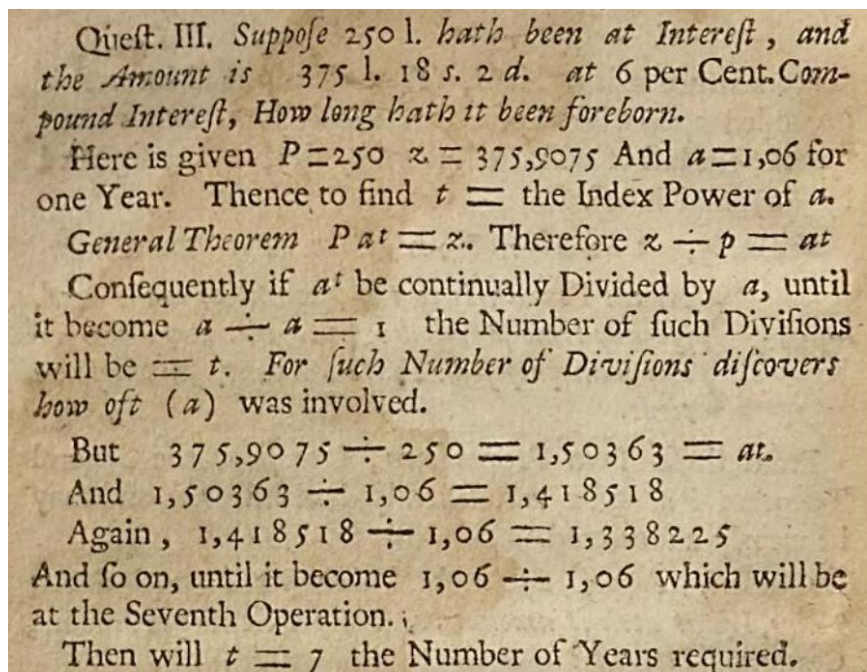 Queſt. III. Suppoſe 250 l. hath been at Intereſt, and
the Amount is 375 l. 18 s. 2 d. at 6 per Cent. Com-
pound Intereſt, How long hath it been foreborn.
Here is given P=250 z = 375,9075 And a=1,06 for
one Year. Thence to find t = the Index Power of a.
General Theorem P aᵗ = z. Therefore z ÷ p = at
Conſequently if aᵗ be continually Divided by a, until
it become a ÷ a = 1 the Number of ſuch Diviſions
will be = t. For ſuch Number of Diviſions diſcovers
how oft (a) was involved.
But 375,9075 ÷ 250 = 1,50363 = at.
And 1,50363 ÷ 1,06 = 1,418518
Again, 1,418518 ÷ 1,06 = 1,338225
And ſo on, until it become 1,06 ÷ 1,06 which will be
at the Seventh Operation.
Then will t = 7 the Number of Years required.